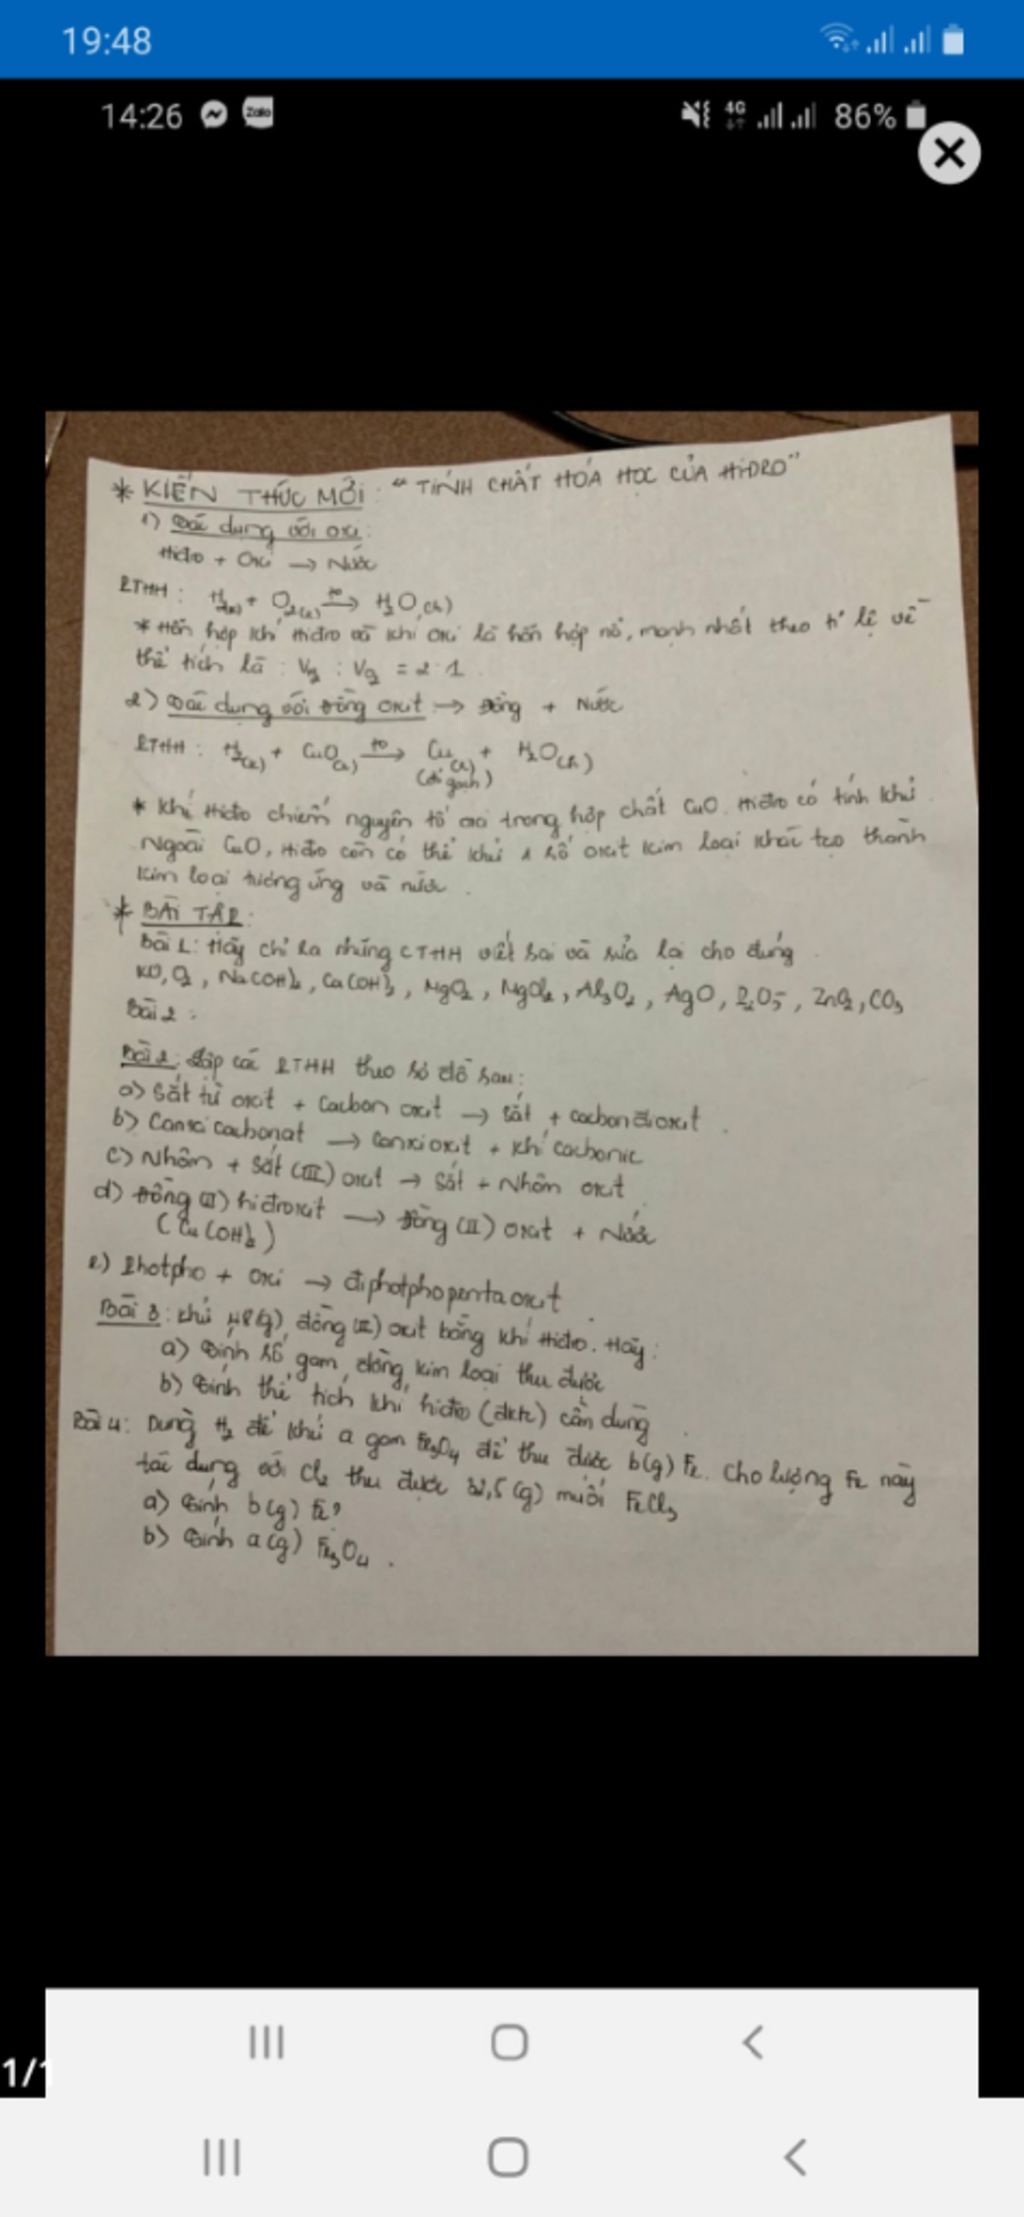 19:48
14:26 Zalo 4G 86%
* KIẾN THỨC MỚI: "TÍNH CHẤT HÓA HỌC CỦA HIĐRO"
1) Tác dụng với oxi:
Hiđro + Oxi → Nước
PTHH: H2(k) + O2(k) t° → H2O(h)
* Hỗn hợp khí Hiđro và khí oxi là hỗn hợp nổ, mạnh nhất theo tỉ lệ về
thể tích là: : = 2:1
2) Tác dụng với đồng oxit → Đồng + Nước
PTHH: H2(k) + CuO(r) t° → Cu(r) + H2O(h)
(đỏ gạch)
* Khí Hiđro chiếm nguyên tố oxi trong hợp chất CuO. Hiđro có tính khử
Ngoài CuO, Hiđro còn có thể khử 1 số oxit kim loại khác tạo thành
kim loại tương ứng và nước.
* BÀI TẬP:
Bài 1: Hãy chỉ ra những CTHH viết sai và sửa lại cho đúng
KO, O2, Na(OH)2, Ca(OH)3, MgO2, MgCl2, Al3O2, AgO, P2O5, ZnO2, CO3
Bài 2:
Bài 2: Lập các PTHH theo sơ đồ sau:
a) Sắt từ oxit + Cacbon oxit → Sắt + cacbon đioxit.
b) Canxi cacbonat → Canxi oxit + Khí cacbonic
c) Nhôm + Sắt (III) oxit → Sắt + Nhôm oxit
d) Đồng (II) hiđroxit → Đồng (II) oxit + Nước
(Cu(OH)2)
e) Photpho + Oxi → điphotpho pentaoxit
Bài 3: Khử 48(g) đồng (II) oxit bằng khí Hiđro. Hãy:
a) Tính số gam đồng kim loại thu được
b) Tính thể tích khí hiđro (đktc) cần dùng
Bài 4: Dùng H2 để khử a gam Fe3O4 để thu được b(g) Fe. Cho lượng Fe này
tác dụng với Cl2 thu được 32,5(g) muối FeCl3
a) Tính b(g) Fe?
b) Tính a(g) Fe3O4.
1/1